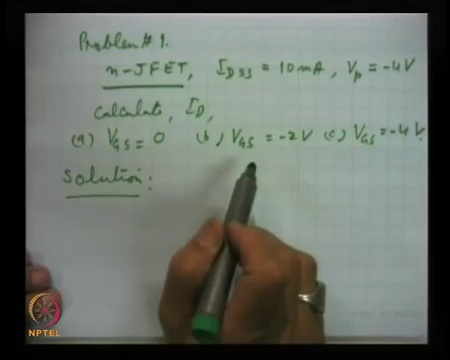 Problem # 1.
n-JFET, I_DSS = 10mA, V_p = -4V
Calculate, I_D,
(a) V_GS = 0 (b) V_GS = -2V (c) V_GS = -4V.
Solution:
NPTEL